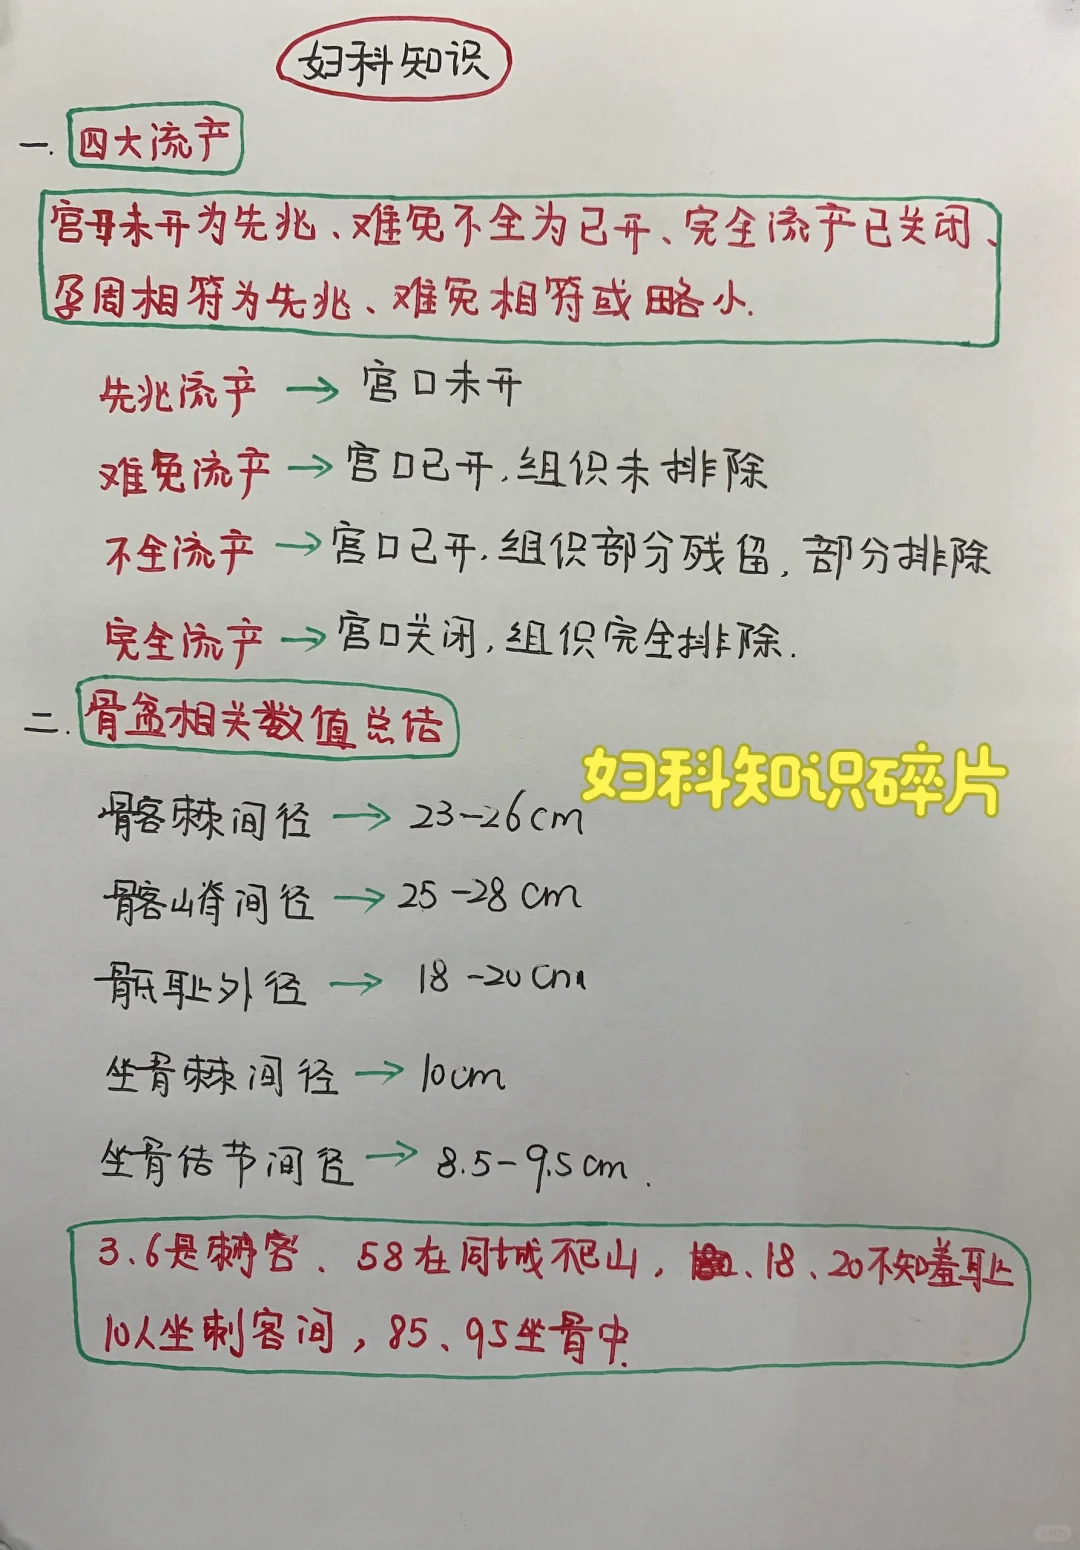 妇科知识
一. 四大流产
宫毋未开为先兆、难免不全为已开、完全流产已关闭、
孕周相符为先兆、难免相符或略小.
先兆流产 → 宫口未开
难免流产 → 宫口已开,组织未排除
不全流产 → 宫口已开,组织部分残留,部分排除
完全流产 → 宫口关闭,组织完全排除.
二. 骨盆相关数值总结
妇科知识碎片
髂棘间径 → 23-26cm
髂嵴间径 → 25-28cm
骶耻外径 → 18-20cm
坐骨棘间径 → 10cm
坐骨结节间径 → 8.5-9.5cm.
3.6是刺客、58在同城爬山,、18、20不知羞耻
10人坐刺客间,85、95坐骨中.